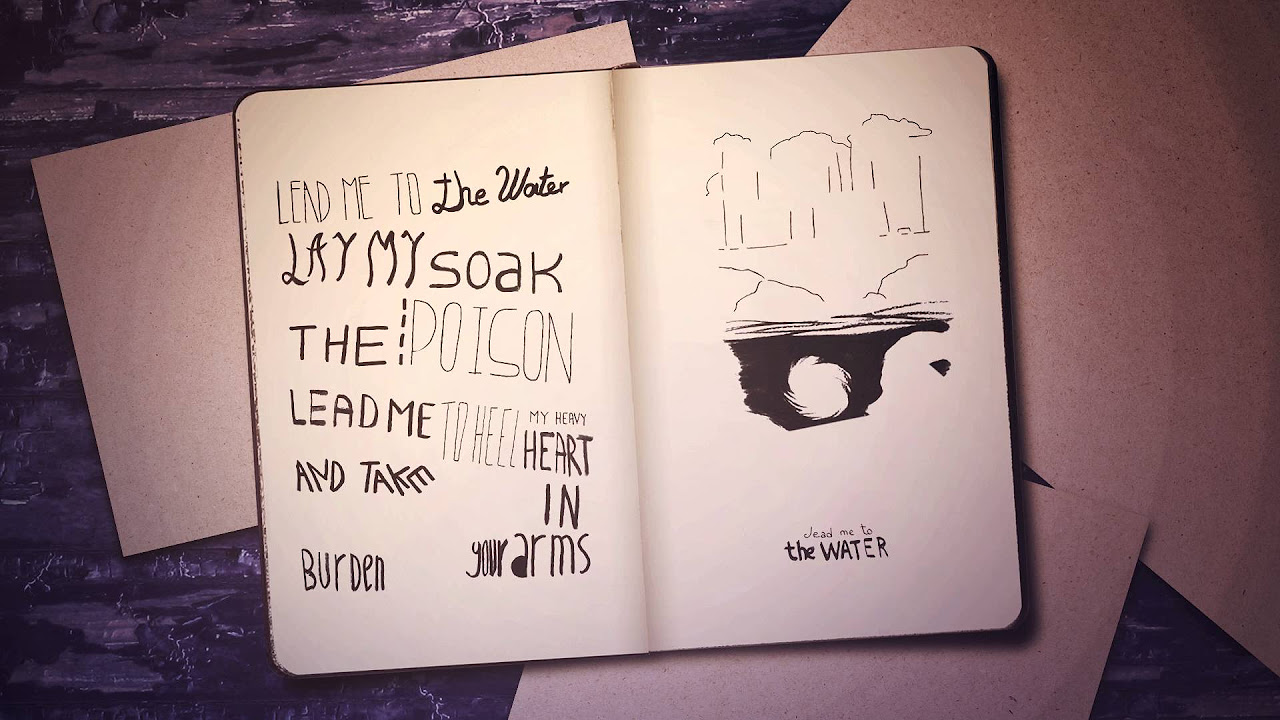 LEAD ME TO the Water
LAY MY soak
THE POISON
LEAD ME TO HEEL MY HEAVY
HEART
AND TAKE
IN
your arms
Burden
lead me to
the WATER